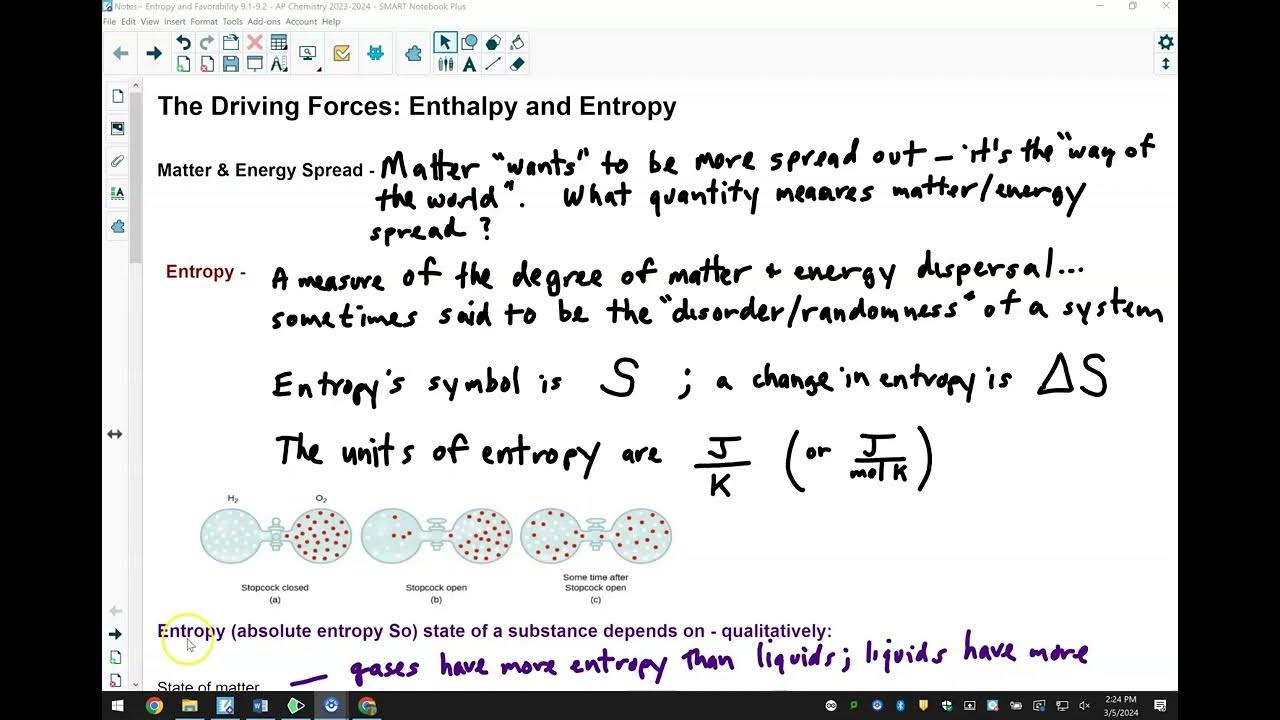 Notes~ Entropy and Favorability 9.1-9.2 - AP Chemistry 2023-2024 - SMART Notebook Plus
File Edit View Insert Format Tools Add-ons Account Help
The Driving Forces: Enthalpy and Entropy
Matter & Energy Spread - Matter "wants" to be more spread out – it's the "way of
the world". What quantity measures matter/energy
spread ?
Entropy - A measure of the degree of matter + energy dispersal...
sometimes said to be the "disorder/randomness" of a system
Entropy's symbol is S ; a change in entropy is ΔS
The units of entropy are J/K (or J/mol K)
H₂ O₂
Stopcock closed
(a)
Stopcock open
(b)
Some time after
Stopcock open
(c)
Entropy (absolute entropy So) state of a substance depends on - qualitatively:
State of matter — gases have more entropy than liquids; liquids have more
2:24 PM
3/5/2024